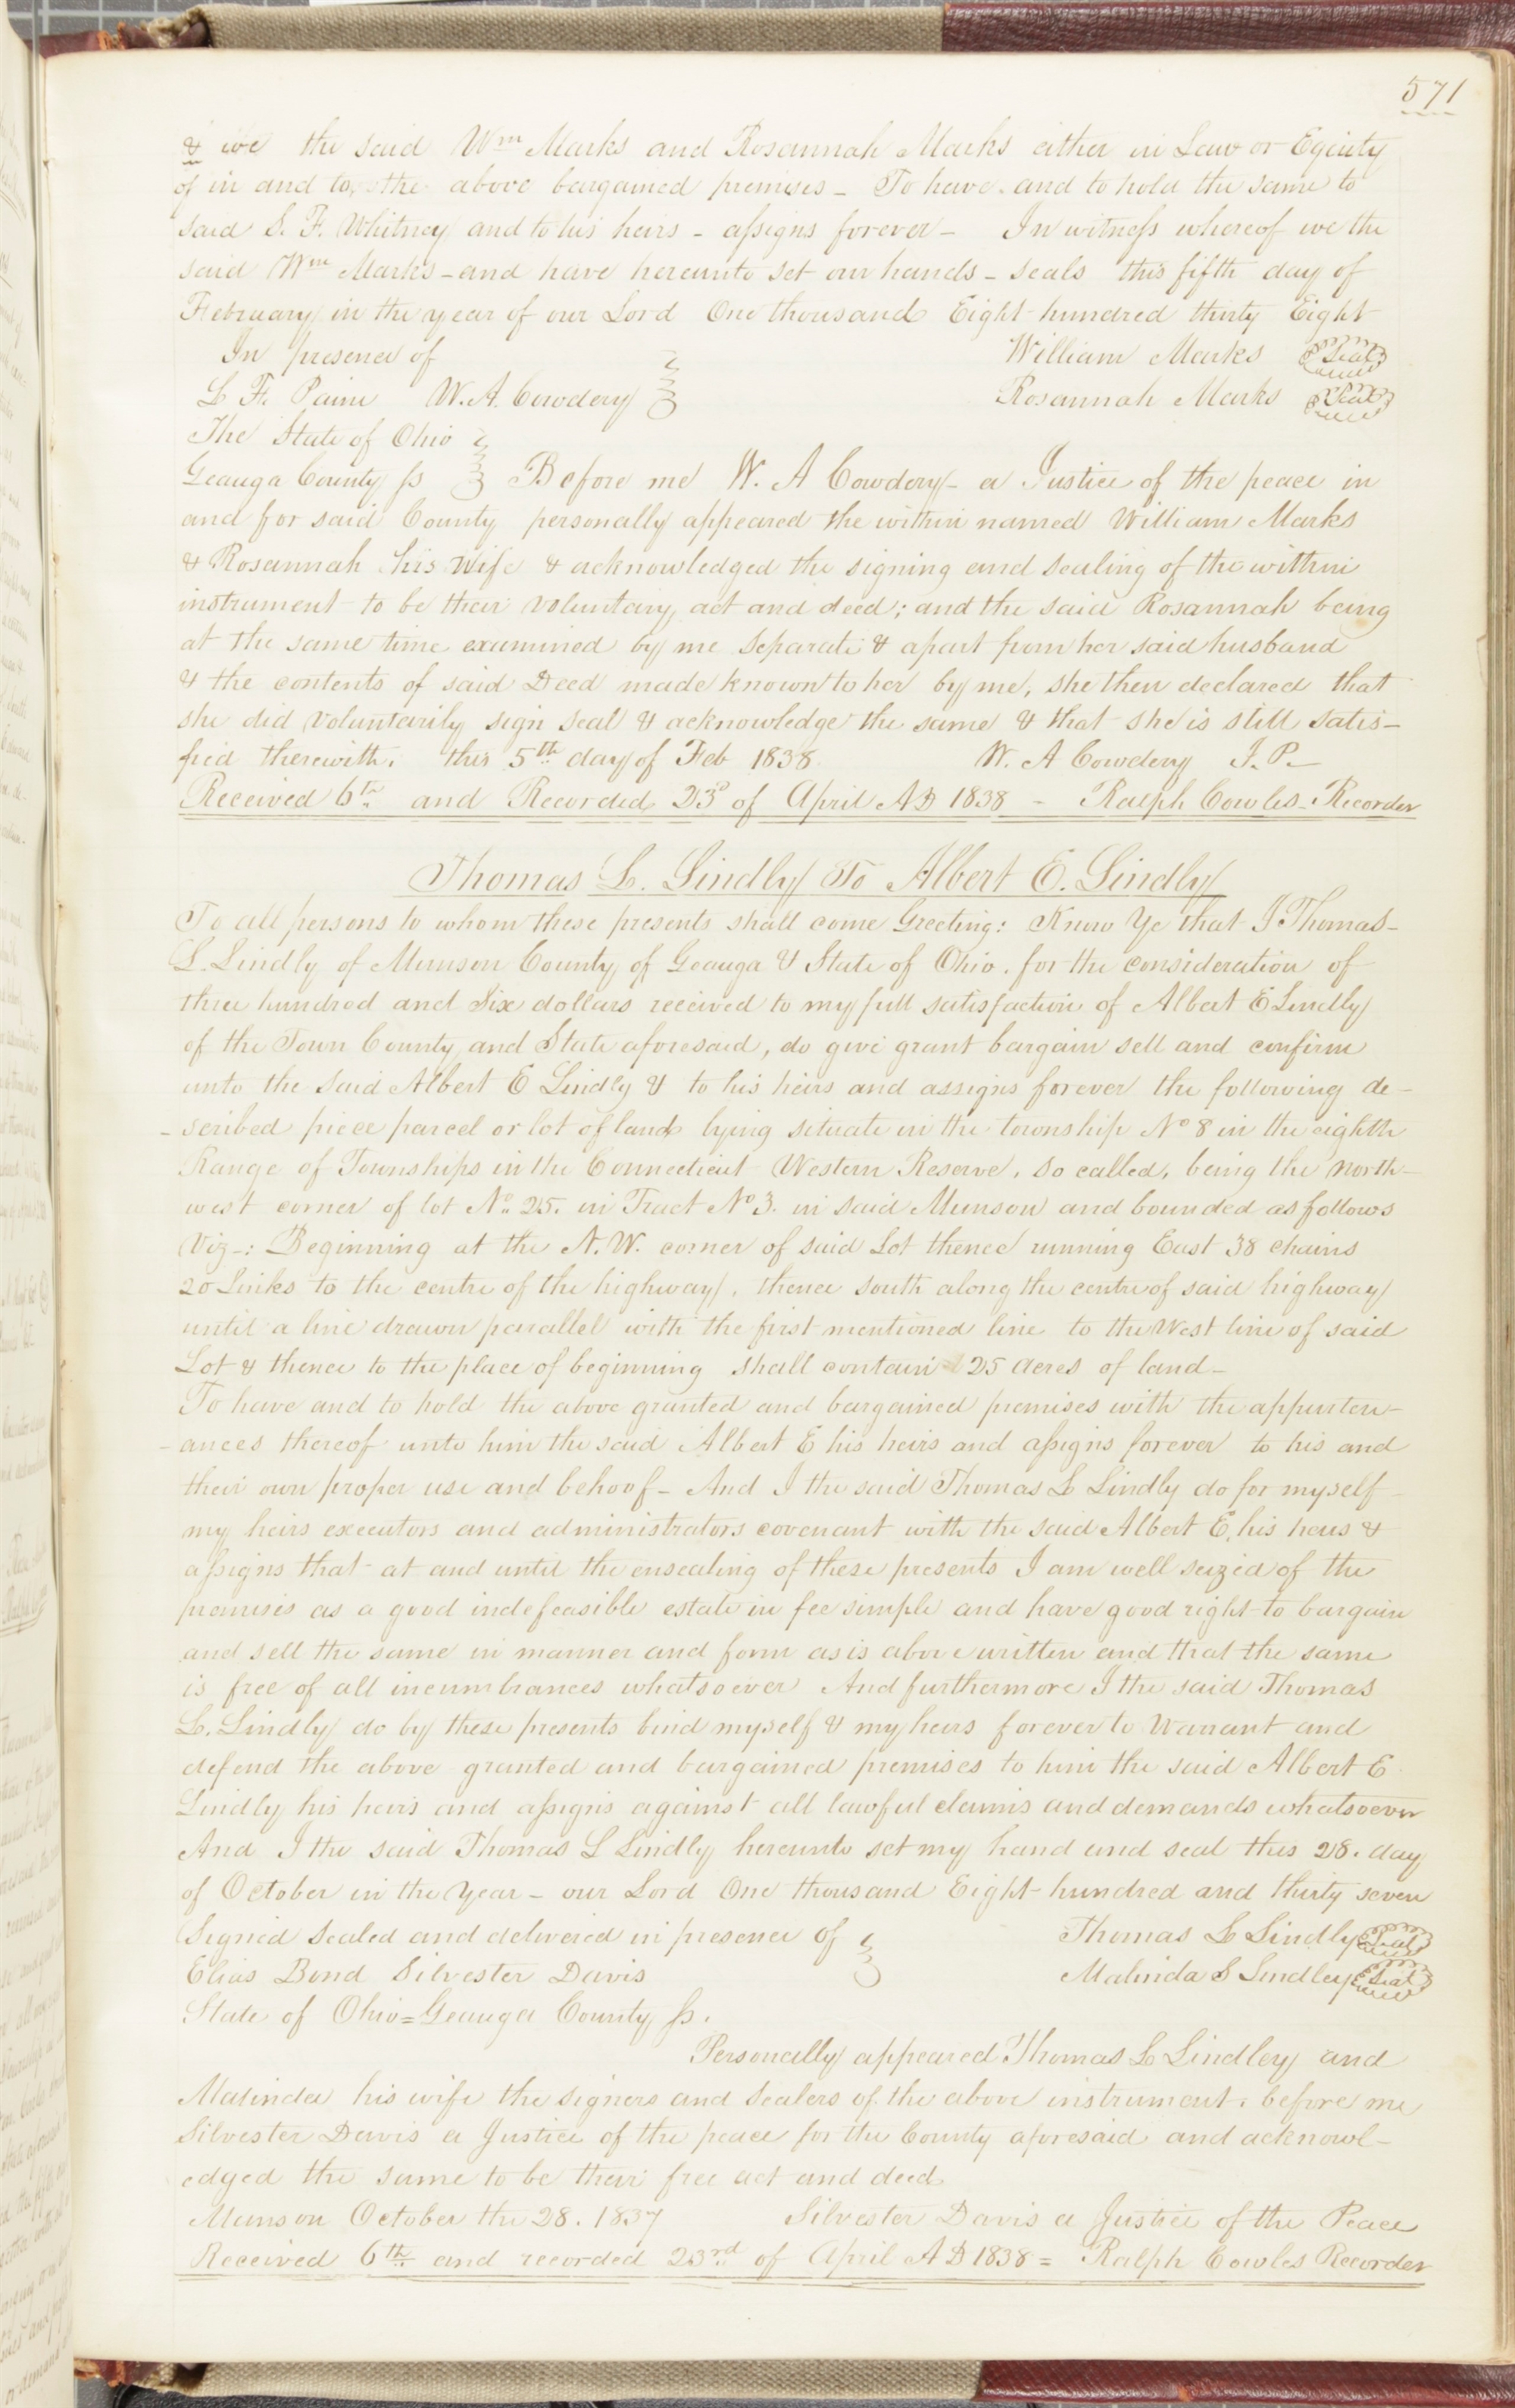 571
& we the said Wm Marks and Rosannah Marks either in Law or Equity
of in and to, the above bargained premises - To have and to hold the same to
said S. F. Whitney and to his heirs - assigns forever - In witness whereof we the
said Wm Marks - and have hereunto set our hands - seals this fifth day of
February in the year of our Lord One thousand Eight hundred thirty Eight
In presence of William Marks Seal
L F. Paine W. A. Cowdery Rosannah Marks Seal
The State of Ohio
Geauga County ss Before me W. A Cowdery - a Justice of the peace in
and for said County personally appeared the within named William Marks
& Rosannah his wife & acknowledged the signing and sealing of the within
instrument to be their voluntary act and deed; and the said Rosannah being
at the same time examined by me separate & apart from her said husband
& the contents of said Deed made known to her by me, she then declared that
she did voluntarily sign seal & acknowledge the same & that she is still satis-
fied therewith. this 5th day of Feb 1838 W. A Cowdery J. P.
Received 6th and Recorded 23d of April AD 1838 - Ralph Cowles - Recorder
Thomas L. Lindly To Albert E. Lindly
To all persons to whom these presents shall come Greeting: Know Ye that I Thomas
L. Lindly of Munson County of Geauga & State of Ohio. for the consideration of
three hundred and Six dollars received to my full satisfaction of Albert E Lindly
of the Town County and State aforesaid, do give grant bargain sell and confirm
unto the said Albert E Lindly & to his heirs and assigns forever the following de-
-scribed piece parcel or lot of land lying situate in the township No 8 in the eighth
Range of Townships in the Connecticut Western Reserve, so called, being the north-
west corner of lot No. 25. in Tract No 3. in said Munson and bounded as follows
Viz-: Beginning at the N. W. corner of said Lot thence running East 38 chains
20 Links to the centre of the highway, thence south along the centre of said highway
until a line drawn parallel with the first mentioned line to the West line of said
Lot & thence to the place of beginning shall contain 25 acres of land -
To have and to hold the above granted and bargained premises with the appurten-
-ances thereof unto him the said Albert E his heirs and assigns forever to his and
their own proper use and behoof - And I the said Thomas L Lindly do for myself
my heirs executors and administrators covenant with the said Albert E, his heirs &
assigns that at and until the ensealing of these presents I am well seized of the
premises as a good indefeasible estate in fee simple and have good right to bargain
and sell the same in manner and form as is above written and that the same
is free of all incumbrances whatsoever And furthermore I the said Thomas
L. Lindly do by these presents bind myself & my heirs forever to Warrant and
defend the above granted and bargained premises to him the said Albert E
Lindly his heirs and assigns against all lawful claims and demands whatsoever
And I the said Thomas L Lindly hereunto set my hand and seal this 28. day
of October in the Year - our Lord One thousand Eight hundred and thirty seven
Signed Sealed and delivered in presence of Thomas L Lindly Seal
Elias Bond Silvester Davis Malinda S Lindley Seal
State of Ohio = Geauga County ss.
Personally appeared Thomas L Lindley and
Malinda his wife the signers and sealers of the above instrument, before me
Silvester Davis a Justice of the peace for the County aforesaid and acknowl-
edged the same to be their free act and deed
Munson October the 28. 1837 Silvester Davis a Justice of the Peace
Received 6th and recorded 23rd of April AD 1838 = Ralph Cowles Recorder